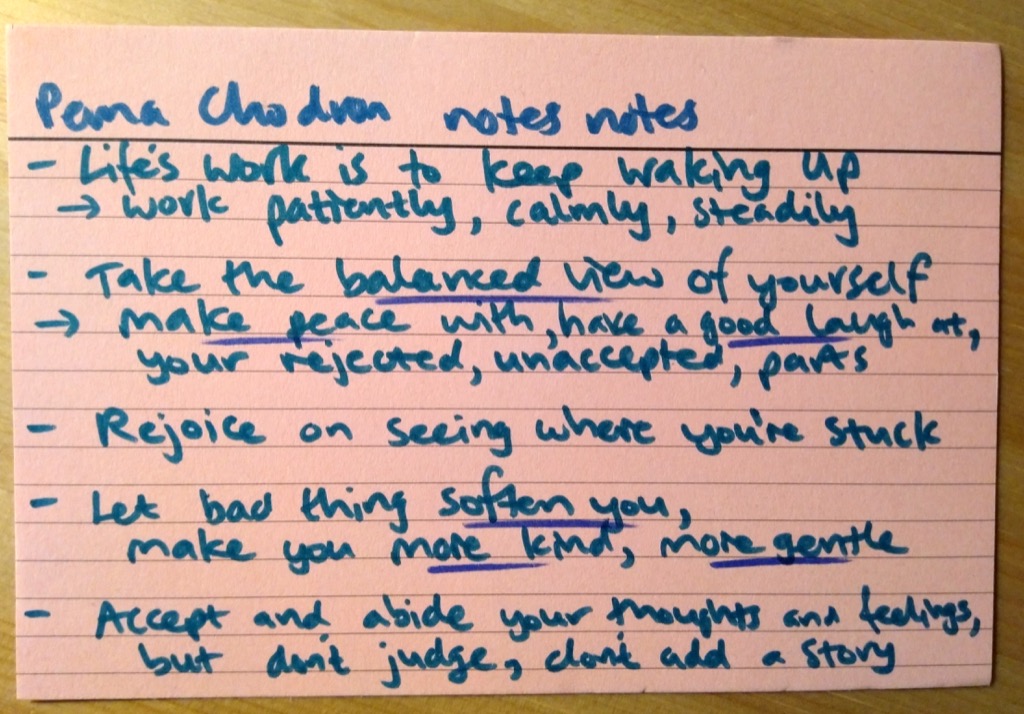 Pema Chodron notes notes
- Life's work is to keep waking up
→ work patiently, calmly, steadily
- Take the balanced view of yourself
→ make peace with, have a good laugh at,
your rejected, unaccepted, parts
- Rejoice on seeing where you're stuck
- Let bad thing soften you,
make you more kind, more gentle
- Accept and abide your thoughts and feelings,
but don't judge, don't add a story